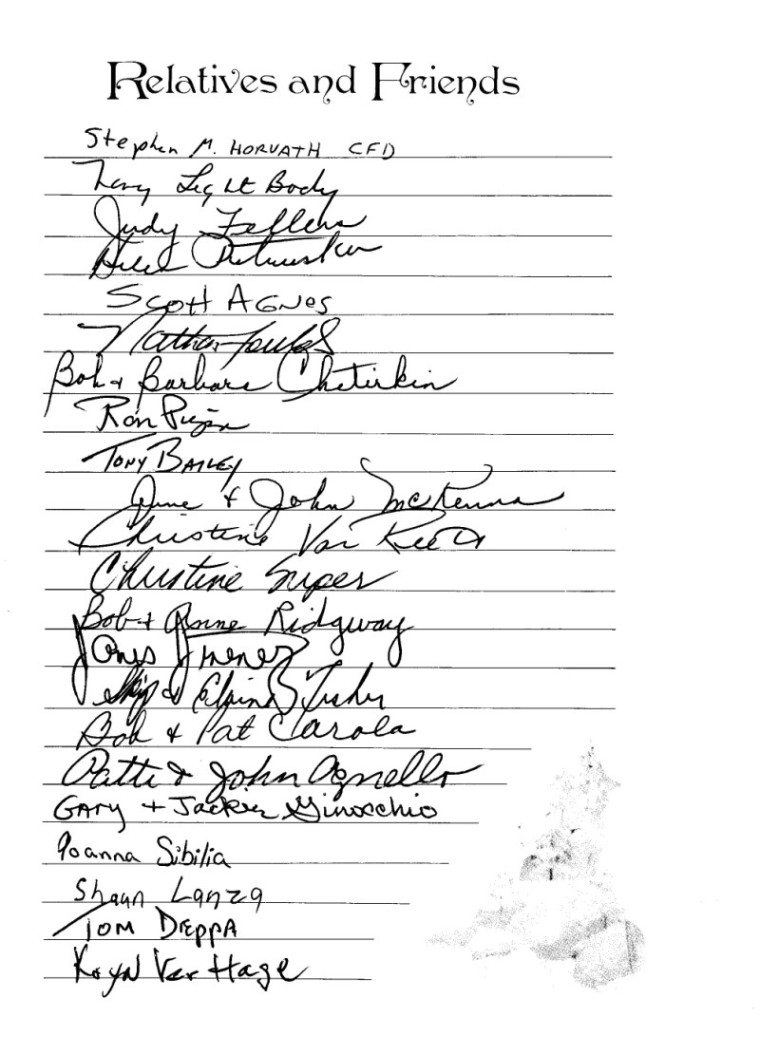 Relatives and Friends
Stephen M. HORVATH CFD
Light Body
Judy Fellens
Scott AGNES
Nathan
Bob + Barbara Chetirkin
Ron
TONY BAILEY
June + John McKenna
Christine Van
Christine Super
Bob + Anne Ridgway
Jimenez
Skip & Elaine
Bob & Pat Carola
Patti & John Agnello
GARY + Jackie Ginocchio
Joanna Sibilia
Shaun Lanza
TOM DEPPA
Kryn Ver Hage